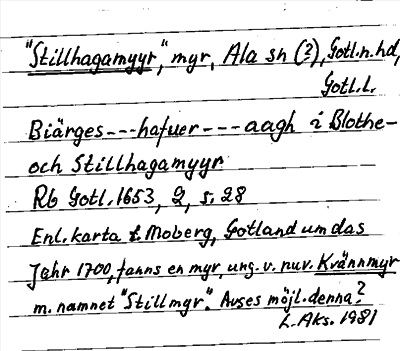 "Stillhagamyyr", myr, Ala sn (?), Gotl.n.hd,
Gotl.l.
Biärges---hafuer---aagh i Blothe-
och Stillhagamyyr
Rb Gotl. 1653, 2, s. 28
Enl. karta t. Moberg, Gotland um das
Jahr 1700, fanns en myr, ung. v. nuv. Krännmyr
m. namnet "Stillmyr". Avses möjl. denna?
L. Aks. 1981